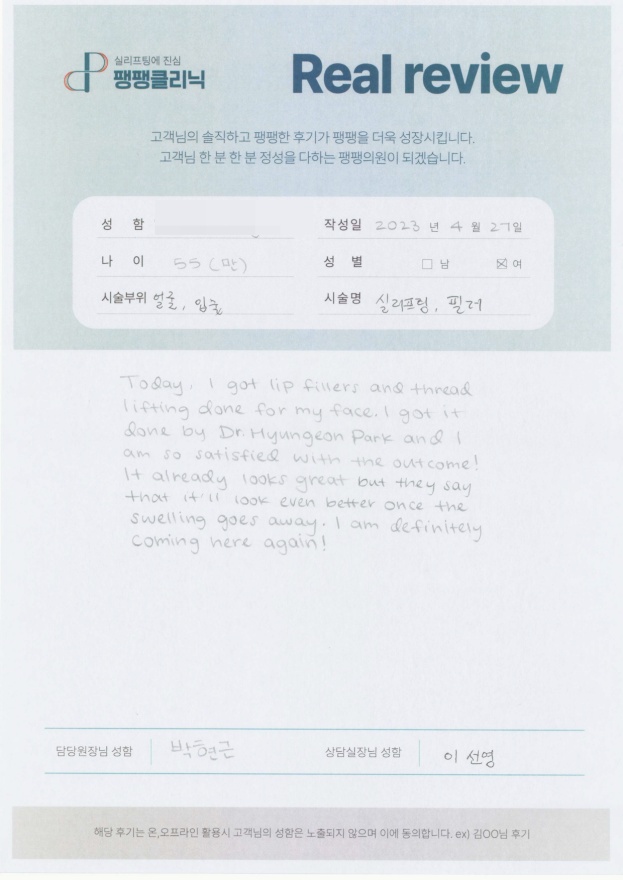 실리프팅에 진심
팽팽클리닉
Real review
고객님의 솔직하고 팽팽한 후기가 팽팽을 더욱 성장시킵니다.
고객님 한 분 한 분 정성을 다하는 팽팽의원이 되겠습니다.
성 함
작성일 2023 년 4 월 27일
나 이 55 (만)
성 별 □ 남 ☒ 여
시술부위 얼굴, 입술
시술명 실리프팅, 필러
Today, I got lip fillers and thread
lifting done for my face. I got it
done by Dr. Hyungeon Park and I
am so satisfied with the outcome!
It already looks great but they say
that it'll look even better once the
swelling goes away. I am definitely
coming here again!
담당원장님 성함 박현근
상담실장님 성함 이선영
해당 후기는 온,오프라인 활용시 고객님의 성함은 노출되지 않으며 이에 동의합니다. ex) 김OO님 후기